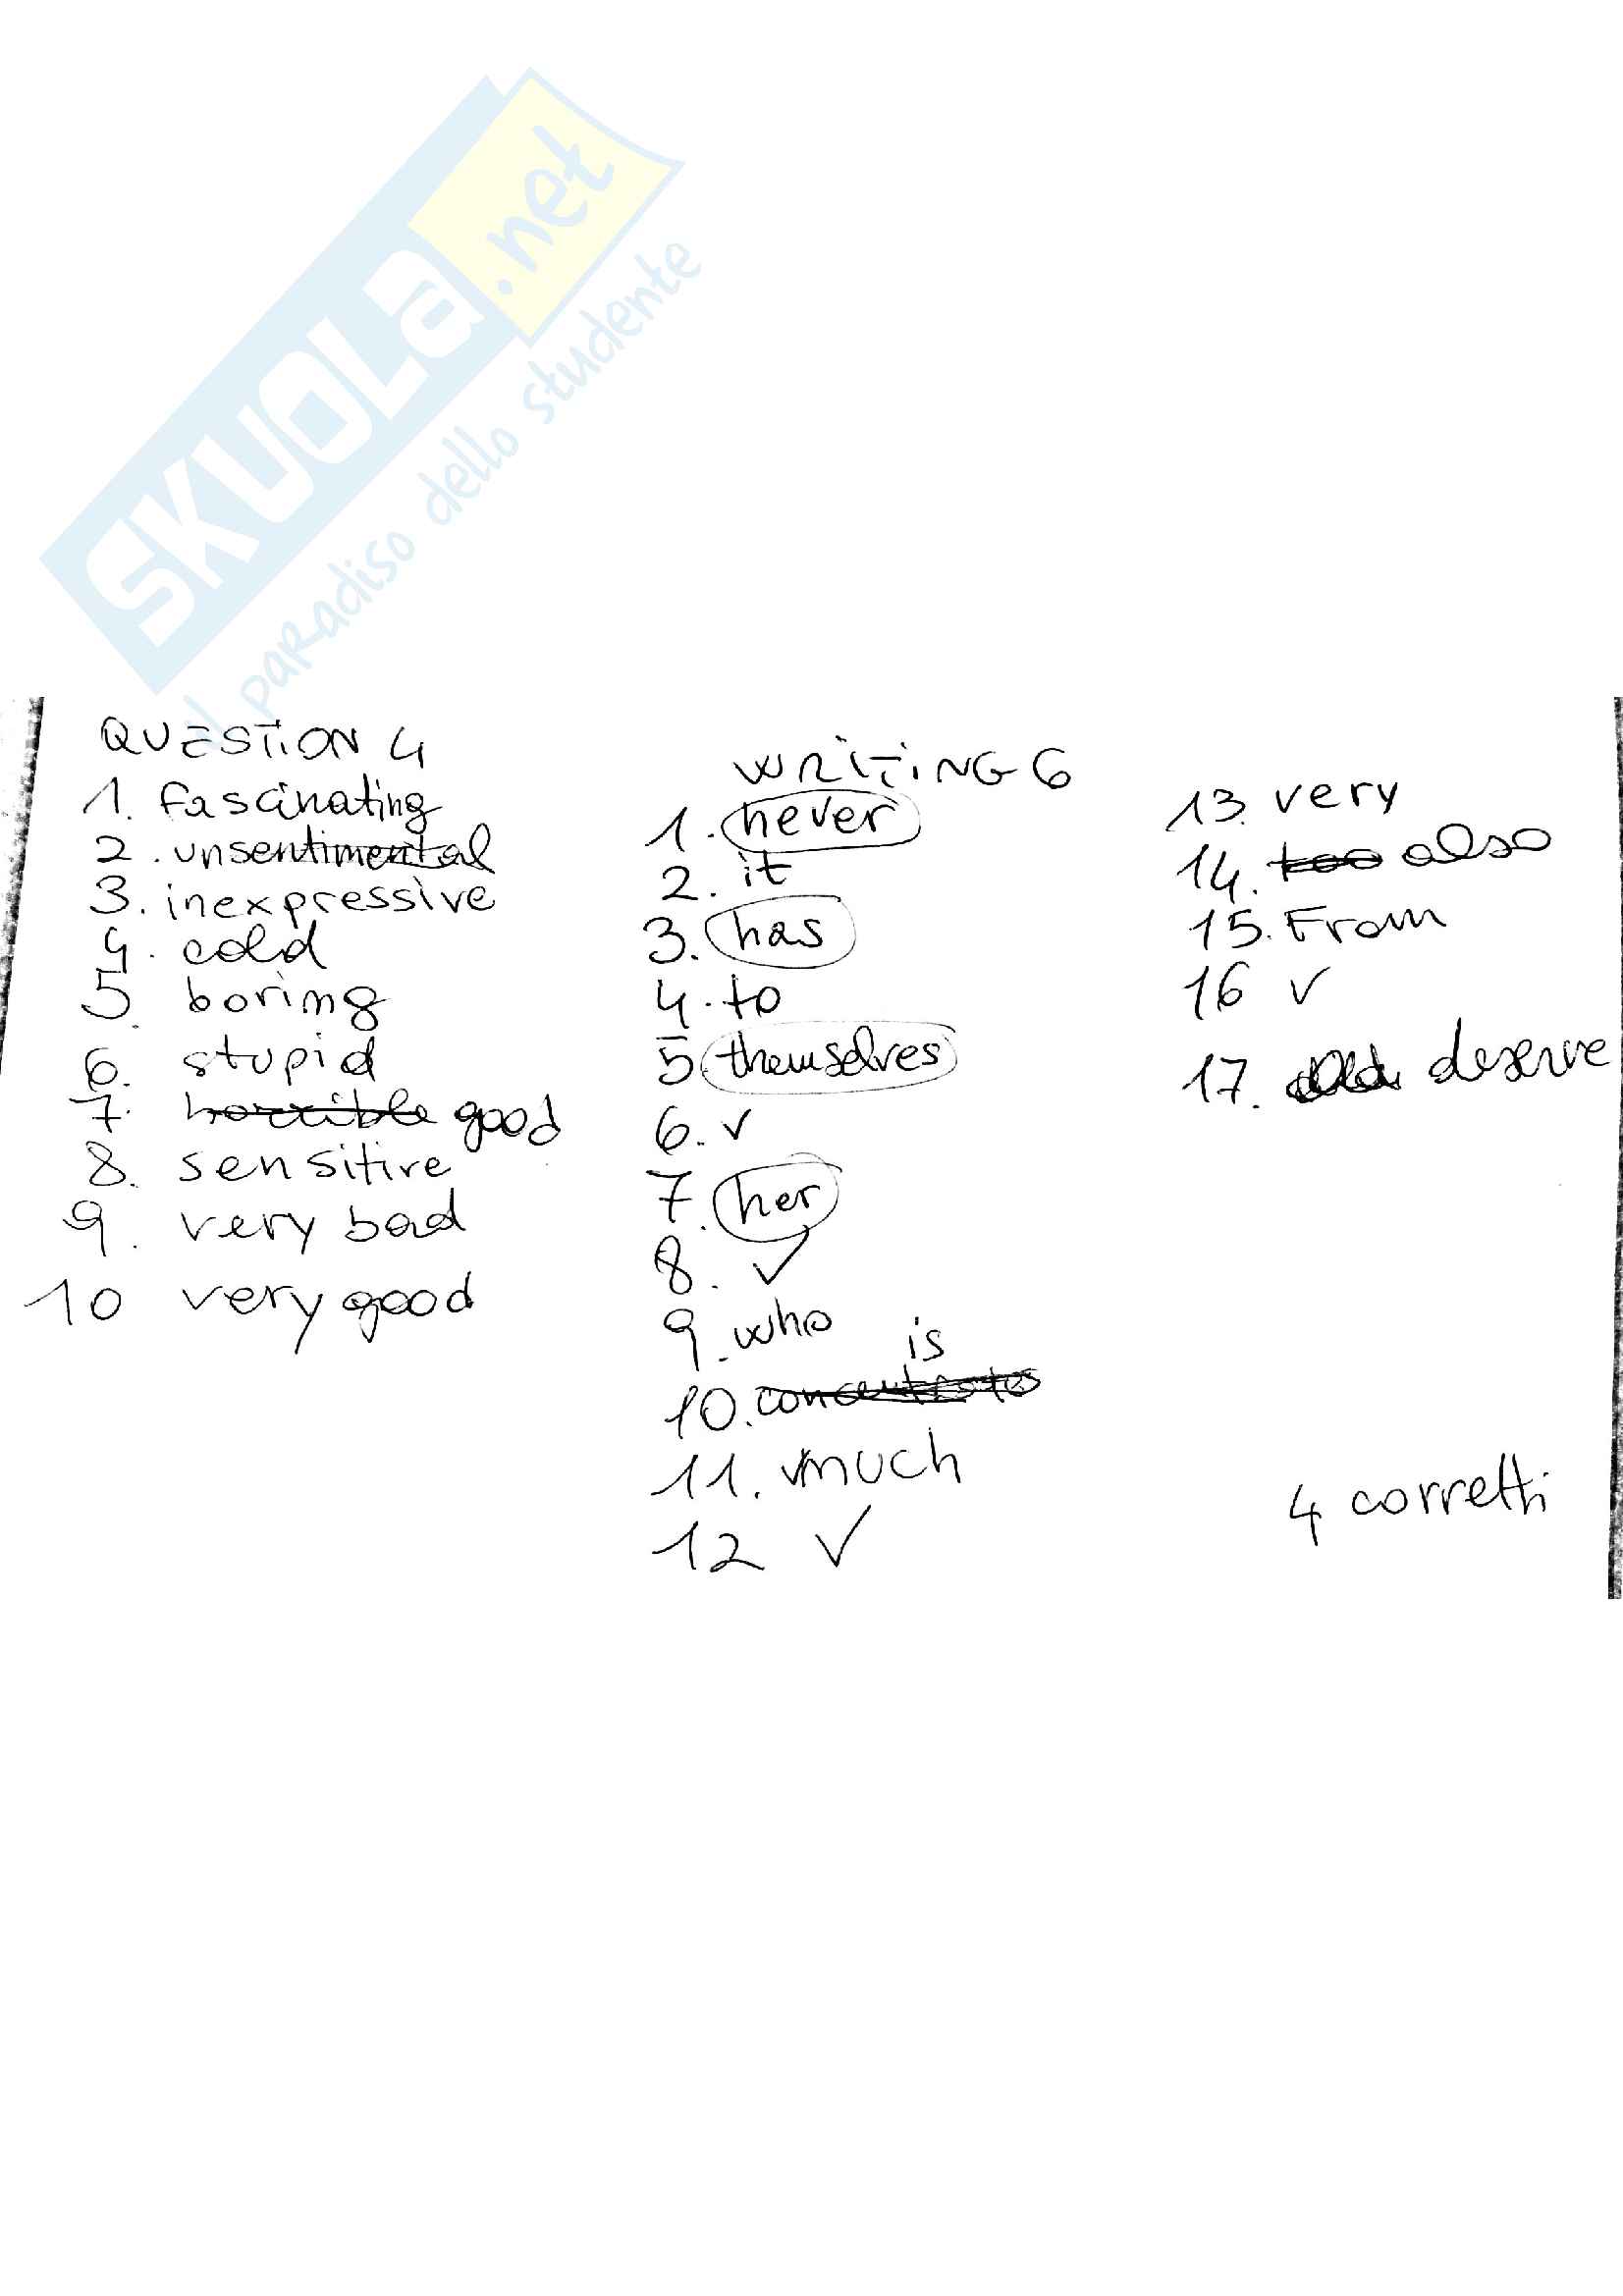 SKUOLA.net
il paradiso dello studente
QUESTION 4
1. fascinating
2. unsentimental
3. inexpressive
4. cold
5. boring
6. stupid
7. horrible good
8. sensitive
9. very bad
10 very good
WRITING 6
1. never
2. it
3. has
4. to
5 themselves
6. ✓
7. her
8. ✓
9. who
is
10. concentrates
11. much
12 ✓
13. very
14. too also
15. From
16 ✓
17. deserve
4 corretti